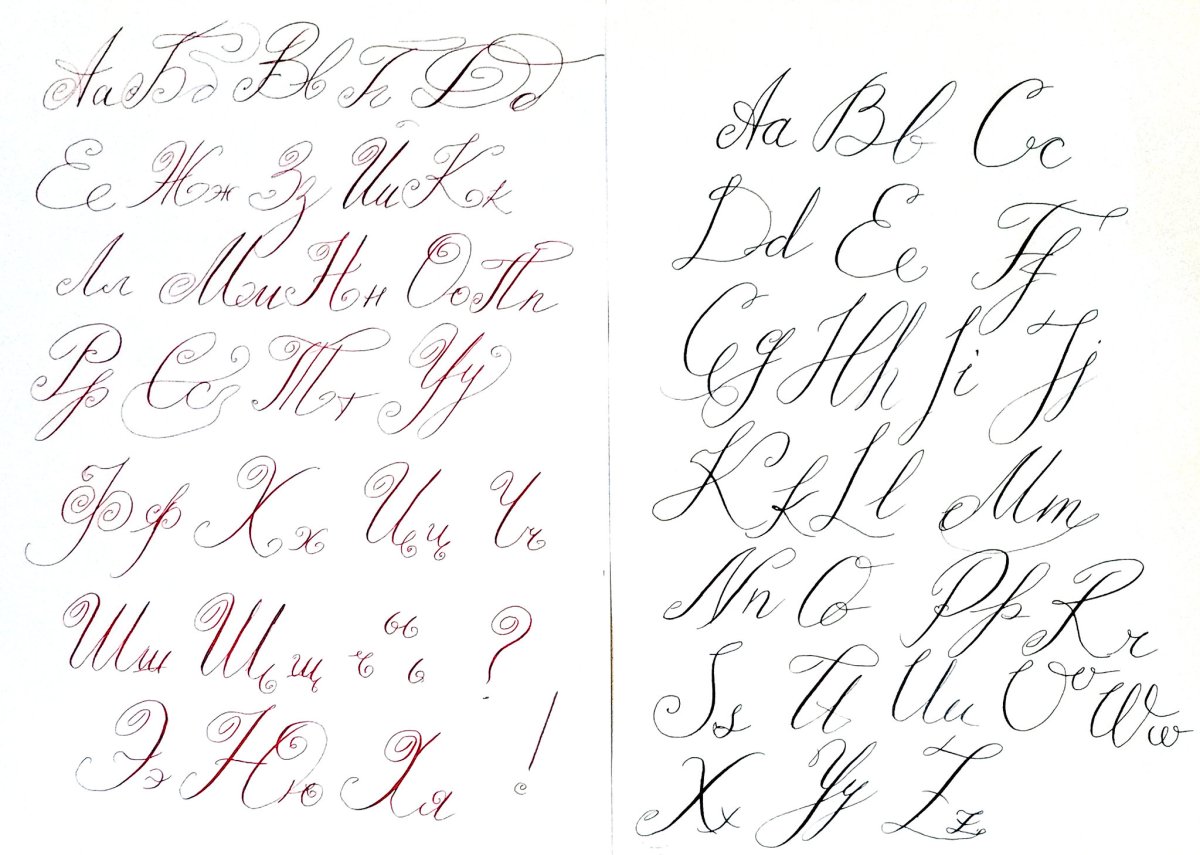 Аа Бб Вв Гг Дд
Ее Жж Зз Йй Кк
Лл Мм Нн Оо Пп
Рр Сс Тт Уу
Фф Хх Цц Чч
Шш Щщ ъ ы ь ?
Ээ Юю Яя !
Aa Bb Cc
Dd Ee Ff
Gg Hh Ii Jj
Kk Ll Mm
Nn Oo Pp Rr
Ss Tt Uu Vv Ww
Xx Yy Zz